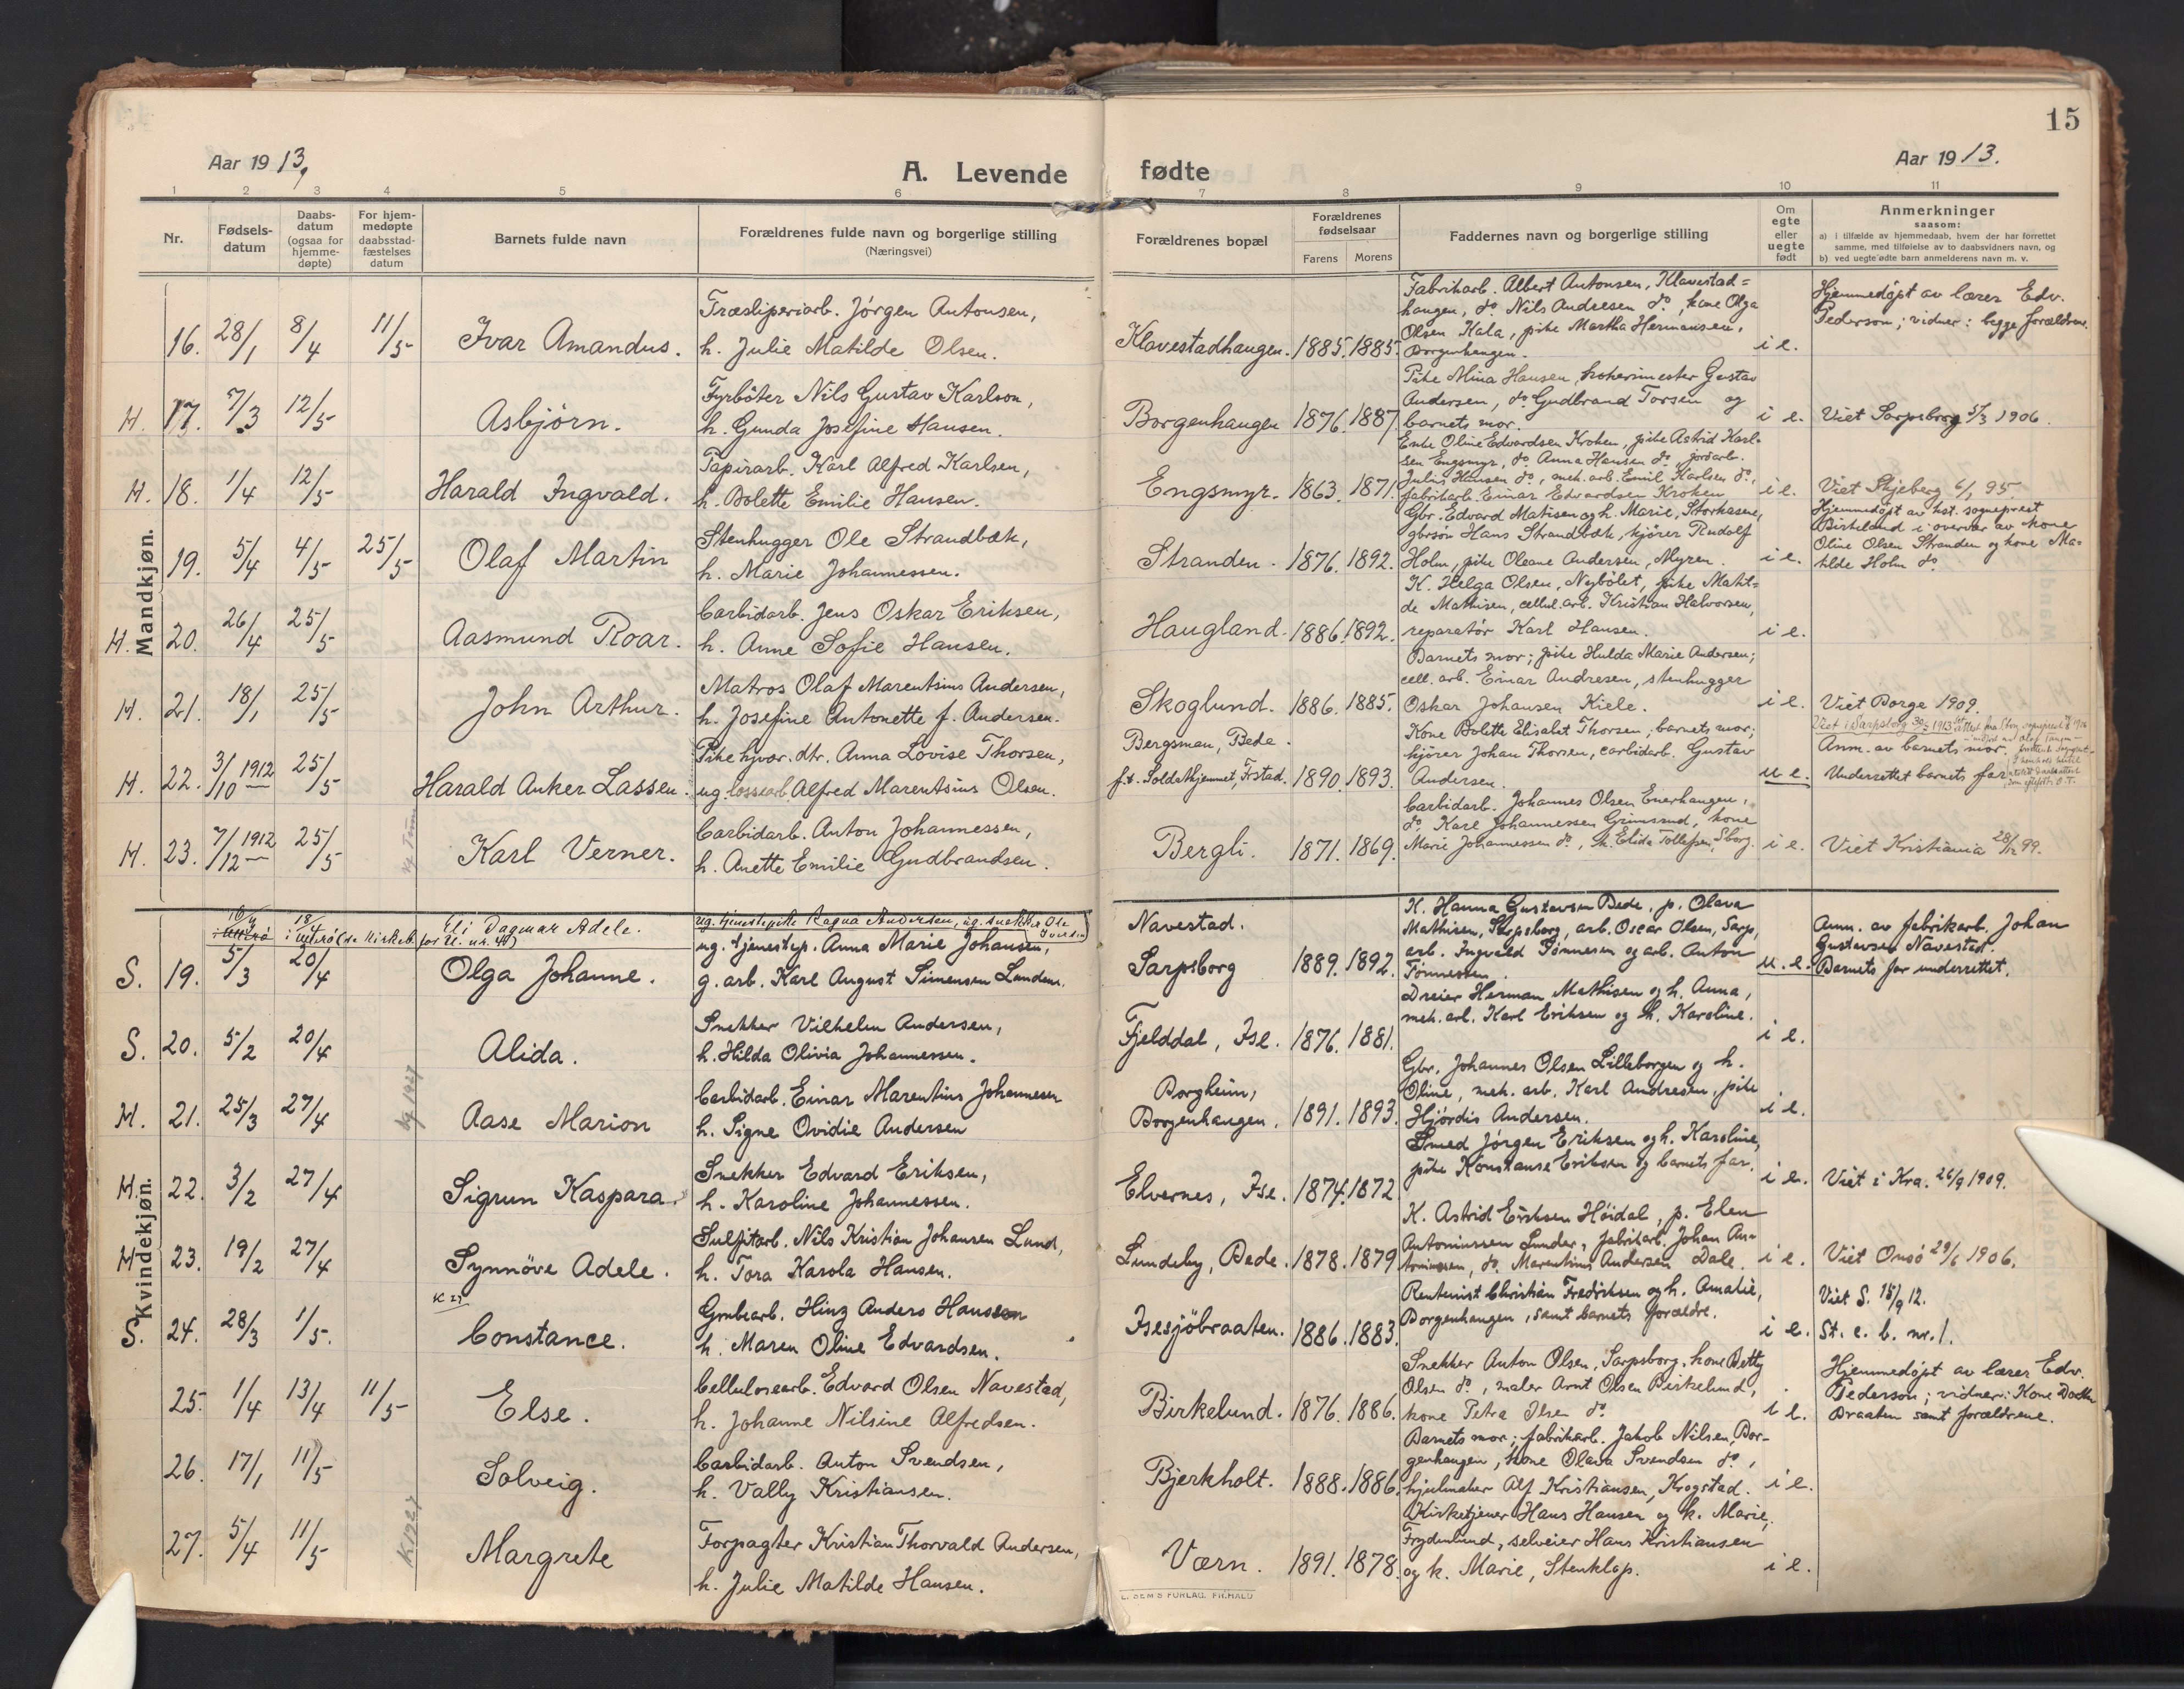 15
Aar 1913,
A. Levende
fødte
Aar 1913.
1 2 3 4 5 6 7 8 9 10 11
Nr.
Fødsels-
datum
Daabs-
datum
(ogsaa for
hjemme-
døpte)
For hjem-
medøpte
daabsstad-
fæstelses
datum
Barnets fulde navn
Forældrenes fulde navn og borgerlige stilling
(Næringsvei)
Forældrenes bopæl
Forældrenes
fødselsaar
Farens Morens
Faddernes navn og borgerlige stilling
Om
egte
eller
uegte
født
Anmerkninger
saasom:
a) i tilfælde av hjemmedaab, hvem der har forrettet
samme, med tilføielse av to daabsvidners navn, og
b) ved uegte fødte barn anmelderens navn m. v.
Mandkjøn.
16. 28/1 8/4 11/5 Ivar Amandus.
Træsliperiarb. Jørgen Antonsen,
h. Julie Matilde Olsen.
Klavestadhaugen. 1885. 1885.
Fabrikarb. Albert Antonsen, Klavestad=
haugen, do. Nils Andresen do, kone Olga
Olsen Kala, pike Martha Hermansen,
Borgenhaugen.
i e.
Hjemmedøpt av lærer Edv.
Pederson; vidner: begge forældrene.
H. 17. 7/3 12/5 Asbjørn.
Fyrbøter Nils Gustav Karlson,
h. Gunda Josefine Hansen.
Borgenhaugen 1876. 1887.
Pike Mina Hansen, kokerimester Gustav
Andersen, do. Gudbrand Torsen og
barnets mor.
i e. Viet Sarpsborg 5/3 1906.
H. 18. 1/4 12/5 Harald Ingvald.
Papirarb. Karl Alfred Karlsen,
h. Bolette Emilie Hansen.
Engsmyr. 1863. 1871.
Enke Oline Edvardsen Kroken, pike Astrid Karl-
sen Engsmyr, do. Anna Hansen do, jordarb.
Julius Hansen do, mek. arb. Emil Karlsen do,
fabrikarb. Einar Edvardsen Kroken
i e. Viet Skjeberg 6/1 95.
19. 5/4 4/5 25/5 Olaf Martin
Stenhugger Ole Strandbæk,
h. Marie Johannessen.
Stranden. 1876. 1892.
Gbr. Edvard Matisen og h. Marie, Storkasene,
gbrsøn Hans Strandbæk, kjører Rudolf
Holm, pike Oleane Andersen, Myren.
i e.
Hjemmedøpt av hst. sogneprest
Birkeland i overvær av kone
Oline Olsen Stranden og kone Ma=
tilde Holm do
H. 20. 26/4 25/5 Aasmund Roar.
Carbidarb. Jens Oskar Eriksen,
h. Anne Sofie Hansen.
Haugland. 1886. 1892.
K. Helga Olsen, Nybølet, pike Matil=
de Mathisen, cellul. arb. Kristian Halvorsen,
reparatør Karl Hansen.
i e.
H. 21. 18/1 25/5 John Arthur.
Matros Olaf Marentsius Andersen,
h. Josefine Antonette f. Andersen.
Skoglund. 1886. 1885.
Barnets mor; pike Hulda Marie Andersen;
cell. arb. Einar Andresen, stenhugger
Oskar Johansen Kiele.
i e. Viet Borge 1909.
H. 22. 3/10 1912 25/5 Harald Anker Lassen.
Pike hjvær. dtr. Anna Lovise Thorsen,
ug. lossearb. Alfred Marentsius Olsen.
Bergsman, Bede.
f. s. Soldathjemmet, Frstad. 1890. 1893.
Kone Bolette Elisabet Thorsen; barnets mor;
kjører Johan Thorsen, carbidarb. Gustav
Andersen.
u e.
Viet i Sarpsborg 30/5 1913
Anm. av barnets mor.
Underrettet barnets far
H. 23. 7/12 1912 25/5 Karl Verner.
Carbidarb. Anton Johannessen,
h. Anette Emilie Gudbrandsen.
Bergli. 1871. 1869.
Carbidarb. Johannes Olsen Enerhaugen,
do. Karl Johannessen Grimsrud, kone
Marie Johannessen do, k. Elida Tollefsen, Sborg.
i e. Viet Kristiania 28/12 99.
Kvindekjøn.
16/4 18/4 Eli Dagmar Adele.
i Ullerø (se Kirkeb. for U. nr. 41)
ug. tjenestepike Ragna Andersen, ug. snekker Ole
Iversen
Navestad.
S. 19. 5/3 20/4 Olga Johanne.
ug. tjenestep. Anna Marie Johansen,
g. arb. Karl August Simensen Lunden.
Sarpsborg 1889. 1892.
K. Hanna Gustavsen Bede, p. Olava
Mathisen, Sarpsborg, arb. Oscar Olsen, Sarp,
arb. Ingvald Tønnesen og arb. Anton
Tønnessen.
u. e.
Anm. av fabrikarb. Johan
Gustavsen Navestad.
Barnets far underrettet.
S. 20. 5/2 20/4 Alida.
Snekker Vilhelm Andersen,
h. Hilda Olivia Johannessen.
Fjelddal, Ise. 1876. 1881.
Dreier Herman Mathisen og h. Anna,
mek. arb. Karl Eriksen og h. Karoline.
i e.
M. 21. 25/3 27/4 kg 1927 Aase Marion
Carbidarb. Einar Marentius Johannesen
h. Signe Ovidie Andersen
Borgheim,
Borgenhaugen. 1891. 1893.
Gbr. Johannes Olsen Lilleborgen og h.
Oline, mek. arb. Karl Andresen, pike
Hjørdis Andersen.
i e.
H. 22. 3/2 27/4 Sigrun Kaspara.
Snekker Edvard Eriksen,
h. Karoline Johannessen.
Elvernes, Ise. 1874. 1872
Smed Jørgen Eriksen og h. Karoline,
pike Konstanse Eriksen og barnets far.
i e. Viet i Kra. 26/9 1909.
H 23. 19/2 27/4 Synnøve Adele.
Sulfitarb. Nils Kristian Johansen Lund,
h. Tora Karola Hansen.
Lundeby, Bede. 1878. 1879
K. Astrid Eriksen Høidal, p. Elen
Antoniussen Lunder, fabrikarb. Johan An-
toniussen, do. Marentius Andersen Dale.
i e. Viet Onsø 29/6 1906.
S. 24. 28/3 1/5. K 27 Constance.
Grubearb. Hinz Anders Hansson
h. Maren Oline Edvardsen.
Isesjøbraaten. 1886. 1883.
Rentenist Christian Fredriksen og h. Amalie,
Borgenhaugen, samt barnets forældre.
i e.
Viet S. 15/9 12.
St. e. b. nr. 1.
25. 1/4 13/4 11/5 Else.
Cellulosearb. Edvard Olsen Navestad,
h. Johanne Nilsine Alfredsen.
Birkelund. 1876. 1886.
Snekker Anton Olsen, Sarpsborg, kone Betty
Olsen do, maler Arnt Olsen Birkelund,
kone Petra Olsen do.
i e.
Hjemmedøpt av lærer Edv.
Pederson; vidner: Kone
Braaten samt forældrene.
26. 17/1 11/5 Solveig.
Carbidarb. Anton Svendsen,
h. Vally Kristiansen.
Bjerkholt. 1888. 1886.
Barnets mor; fabrikarb. Jakob Nilsen, Bor-
genhaugen, kone Olava Svendsen do,
hjulmaker Alf Kristiansen, Krogstad.
i e.
27. 5/4 11/5 K 1927 Margrete
Forpagter Kristian Thorvald Andersen,
h. Julie Matilde Hansen.
Værn. 1891. 1878.
Kirketjener Hans Hansen og k. Marie,
Frydenlund, selveier Hans Kristiansen
og k. Marie, Stenklop.
i e.
SEM'S FORLAG. FR.HALD